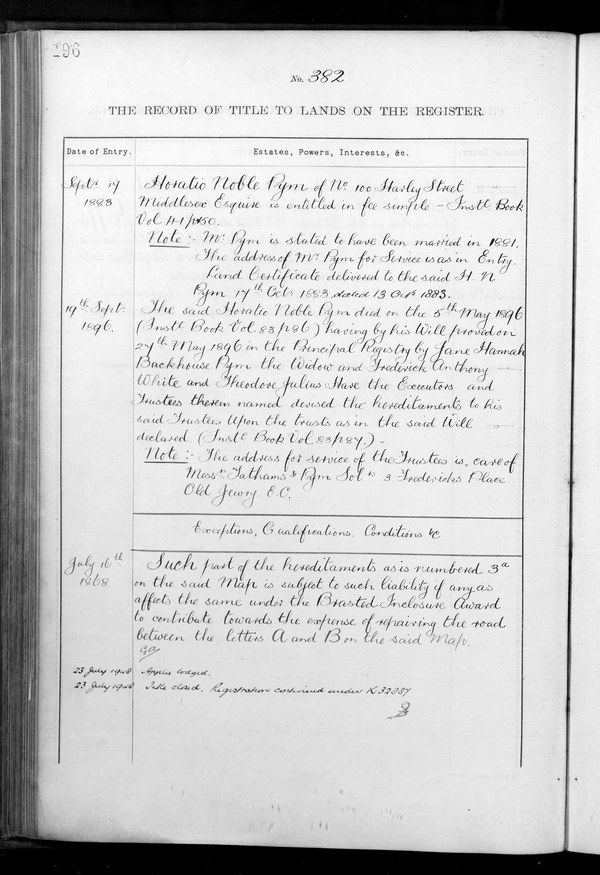 296
No. 382
THE RECORD OF TITLE TO LANDS ON THE REGISTER.
Date of Entry.
Estates, Powers, Interests, &c.
Septr. 17
1883
Horatio Noble Pym of No. 100 Harley Street
Middlesex Esquire is entitled in fee simple - Instt. Book
Vol 41/p450.
Note:- Mr. Pym is stated to have been married in 1881.
The address of Mr. Pym for Service is as in Entry.
Land Certificate delivered to the said H. N
Pym 17th Octr. 1883 dated 13 Octr. 1883.
19th Septr.
1896.
The said Horatio Noble Pym died on the 5th May 1896
(Instt. Book Vol. 83/p86) having by his Will proved on
27th May 1896 in the Principal Registry by Jane Hannah
Backhouse Pym the Widow and Frederick Anthony
White and Theodore Julius Hare the Executors and
Trustees therein named devised the hereditaments to his
said Trustees Upon the trusts as in the said Will
declared (Instt. Book Vol. 83/p87.) -
Note:- The address for service of the Trustees is, care of
Messrs. Tathams & Pym Solrs. 3 Fredericks Place
Old Jewry. E.C.
Exceptions, Qualifications, Conditions &c
July 16th
1868.
Such part of the hereditaments as is numbered 3a
on the said Map is subject to such liability if any as
affects the same under the Brasted Inclosure Award
to contribute towards the expense of repairing the road
between the letters A and B on the said Map.
23 July 1928 Applic lodged.
23 July 1928 Title closed. Registration continued under K 32887